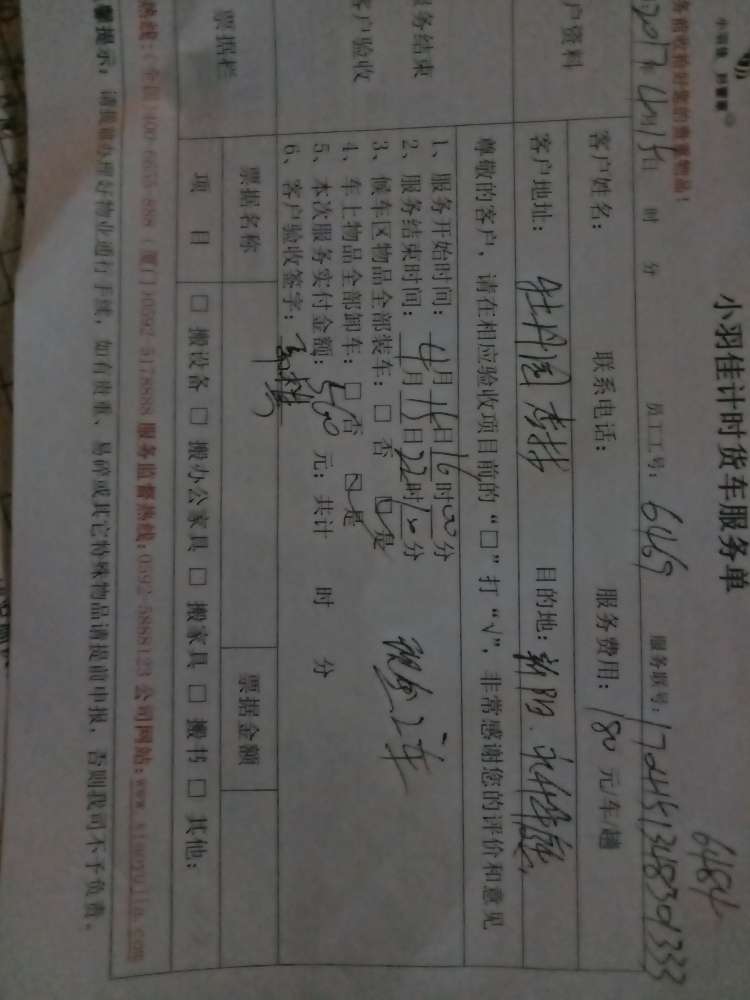 小羽佳计时货车服务单
务前收拾好您的贵重物品!
2017年4月15日 时 分 员工工号: 6469 服务联号: 
6484
户资料
客户姓名: 联系电话: 服务费用: 180 元/车/趟
客户地址: 牡丹园 目的地: 新阳
服务结束
客户验收
尊敬的客户,请在相应验收项目前的“□”打“√”,非常感谢您的评价和意见
1、服务开始时间: 4月15日16时00分
2、服务结束时间: 4月15日22时10分
3、候车区物品全部装车: □ 否 ☑ 是
4、车上物品全部卸车: □ 否 ☑ 是
5、本次服务实付金额: 360 元; 共计 时 分
6、客户验收签字:
现金2车
票据栏
票据名称 票据金额
项 目 □ 搬设备 □ 搬办公家具 □ 搬家具 □ 搬书 □ 其他:
热线:(全国)400-6655-888 (厦门)0592-5178888 服务监督热线:0592-5888123 公司网站:www.xiaoyujia.com
馨提示: 请提前办理好物业通行手续, 如有贵重、易碎或其它特殊物品请提前申报, 否则我司不予负责。